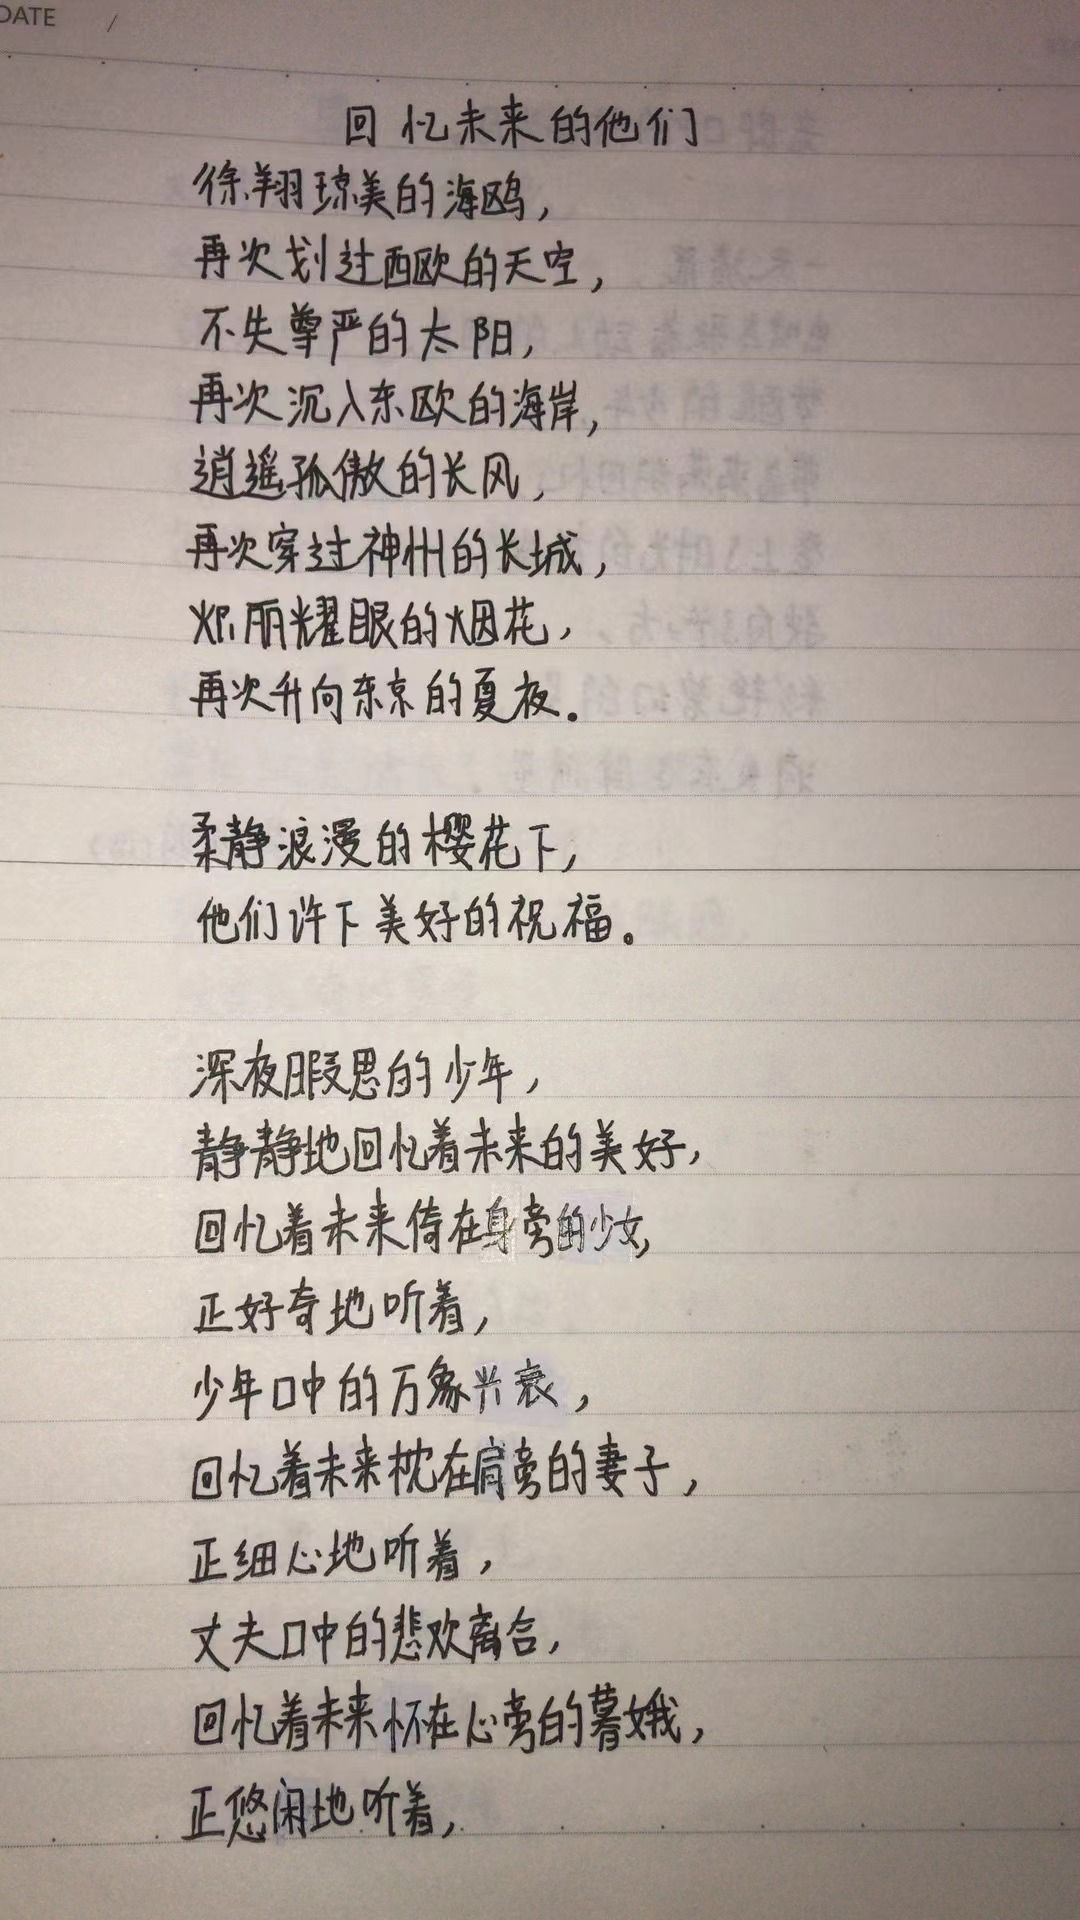 DATE /
回忆未来的他们
徐翔琼美的海鸥，
再次划过西欧的天空，
不失尊严的太阳，
再次沉入东欧的海岸，
逍遥孤傲的长风，
再次穿过神州的长城，
炽丽耀眼的烟花，
再次升向东京的夏夜。
柔静浪漫的樱花下，
他们许下美好的祝福。
深夜暇思的少年，
静静地回忆着未来的美好，
回忆着未来倚在身旁的少女，
正好奇地听着，
少年口中的万象兴衰，
回忆着未来枕在肩旁的妻子，
正细心地听着，
丈夫口中的悲欢离合，
回忆着未来怀在心旁的暮娥，
正悠闲地听着，